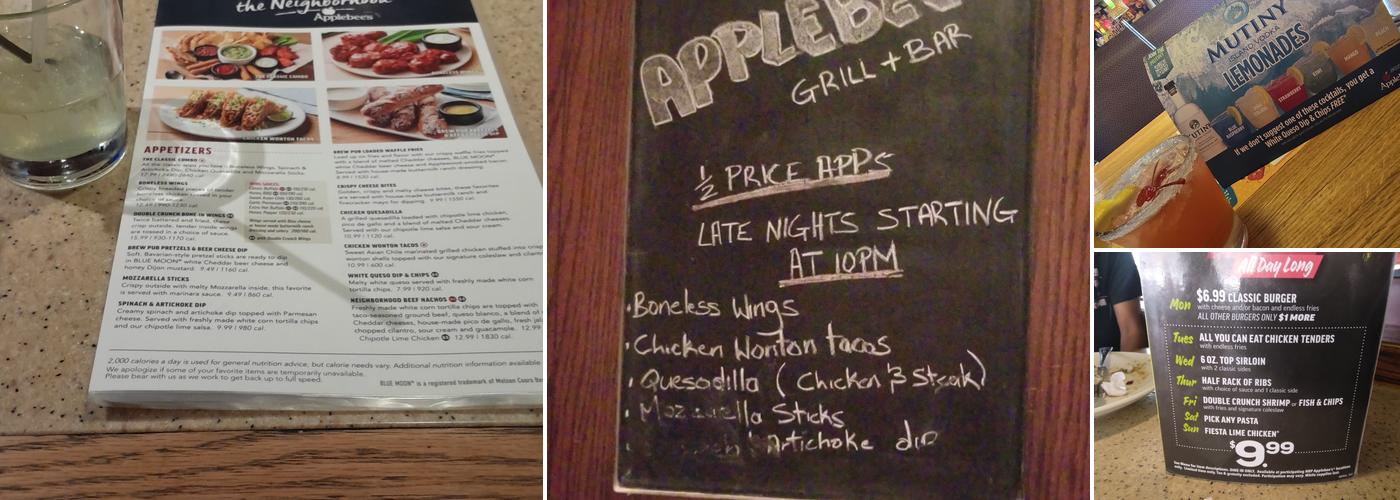 the Neighborhood
Applebee's
THE CLASSIC COMBO
BONELESS WINGS
CHICKEN WONTON TACOS
BREW PUB PRETZELS
& BEER CHEESE DIP
APPETIZERS
THE CLASSIC COMBO
BONELESS WINGS
Crispy breaded pieces of tender
choice of sauce.
DOUBLE CRUNCH BONE-IN WINGS
Twice battered and fried, these
crisp outside, tender inside wings
are tossed in a choice of sauce.
BREW PUB PRETZELS & BEER CHEESE DIP
Soft, Bavarian-style pretzel sticks are ready to dip
in BLUE MOON® white Cheddar beer cheese and
honey Dijon mustard. 9.49 | 1160 cal.
MOZZARELLA STICKS
Crispy outside with melty Mozzarella inside, this favorite
is served with marinara sauce. 9.49 | 860 cal.
SPINACH & ARTICHOKE DIP
Creamy spinach and artichoke dip topped with Parmesan
cheese. Served with freshly made white corn tortilla chips
and our chipotle lime salsa. 9.99 | 980 cal.
BREW PUB LOADED WAFFLE FRIES
CRISPY CHEESE BITES
Golden, crispy and melty cheese bites, these favorites
are served with house-made buttermilk ranch and
CHICKEN QUESADILLA
A grilled quesadilla loaded with chipotle lime chicken,
Served with our chipotle lime salsa and sour cream.
10.99 | 1120 cal.
CHICKEN WONTON TACOS
Sweet Asian Chile marinated grilled chicken stuffed into crisp
wonton shells topped with our signature coleslaw and
10.99 | 600 cal.
WHITE QUESO DIP & CHIPS
Melty white queso served with freshly made white corn
tortilla chips. 7.99 | 920 cal.
NEIGHBORHOOD BEEF NACHOS
Freshly made white corn tortilla chips are topped with
taco-seasoned ground beef, queso blanco, a blend of
Cheddar cheeses, house-made pico de gallo, fresh
chopped cilantro, sour cream and guacamole. 12.99
Chipotle Lime Chicken 12.99 | 1830 cal.
2,000 calories a day is used for general nutrition advice, but calorie needs vary. Additional nutrition information available
We apologize if some of your favorite items are temporarily unavailable.
Please bear with us as we work to get back up to full speed.
BLUE MOON® is a registered trademark of Molson Coors
APPLEBEE
GRILL + BAR
½ PRICE APPS
LATE NIGHTS STARTING
AT 10PM
• Boneless Wings
• Chicken Wonton tacos
• Quesadilla (Chicken & Steak)
• Mozzarella Sticks
Artichoke dip
MUTINY
ISLAND VODKA
LEMONADES
BLUE RASPBERRY
STRAWBERRY
KIWI
MANGO
PEACH
If we don't suggest one of these cocktails, you get a
White Queso Dip & Chips FREE*
All Day Long
Mon $6.99 CLASSIC BURGER
with cheese and/or bacon and endless fries
ALL OTHER BURGERS ONLY $1 MORE
Tues ALL YOU CAN EAT CHICKEN TENDERS
with endless fries
Wed 6 OZ. TOP SIRLOIN
with 2 classic sides
Thur HALF RACK OF RIBS
with choice of sauce and 1 classic side
Fri DOUBLE CRUNCH SHRIMP or FISH & CHIPS
with fries and signature coleslaw
Sat PICK ANY PASTA
Sun FIESTA LIME CHICKEN®
$9.99